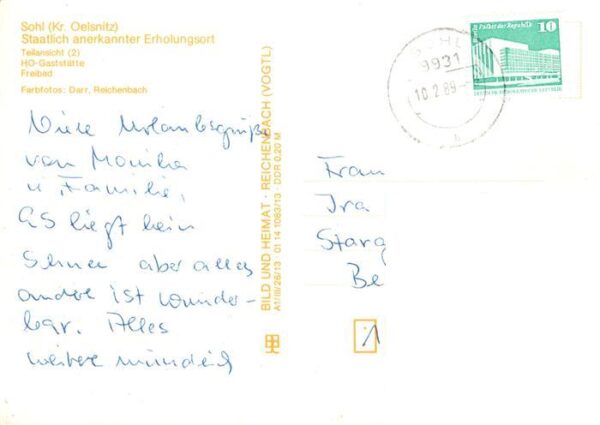 Sohl (Kr. Oelsnitz)
Staatlich anerkannter Erholungsort
Teilansicht (2)
HO-Gaststätte
Freibad
Farbfotos: Darr, Reichenbach
Viele Urlaubsgrüße
von Monika
u. Familie.
Es liegt kein
Schnee aber alles
andere ist wunder-
bar. Alles
weitere mündlich
BILD UND HEIMAT · REICHENBACH (VOGTL)
A1/III/26/13 01 14 1083/13 · DDR 0,20 M
Palast der Republik
10
DEUTSCHE DEMOKRATISCHE REPUBLIK
9931
10.2.89
b
Frau
Ira
Starg
Be
1